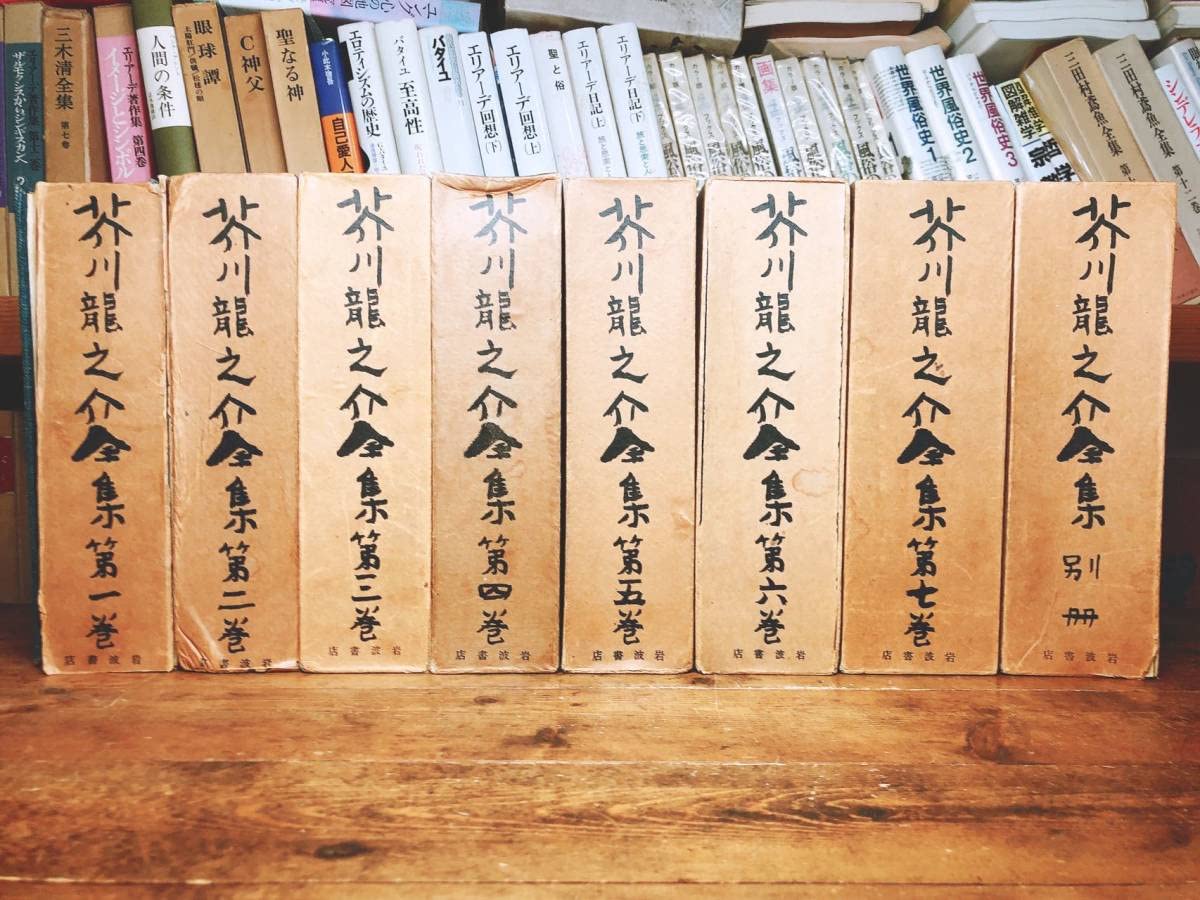 三木清全集 第七巻
エリアーデ著作集 第四巻
イメージとシンボル
人間の条件
眼球譚
C神父
聖なる神
自己愛人
エロティシズムの歴史
バタイユ 至高性
バタイユ
エリアーデ回想(下)
エリアーデ回想(上)
聖と俗
エリアーデ日記(上)
エリアーデ日記(下)
画集
世界風俗史1
世界風俗史2
世界風俗史3
図解雑学
三田村鳶魚全集
三田村鳶魚全集
芥川龍之介全集第一巻
店書波岩
芥川龍之介全集第二巻
店書波岩
芥川龍之介全集第三巻
店書波岩
芥川龍之介全集第四巻
店書波岩
芥川龍之介全集第五巻
店書波岩
芥川龍之介全集第六巻
店書波岩
芥川龍之介全集第七巻
店書波岩
芥川龍之介全集 別冊
店書波岩